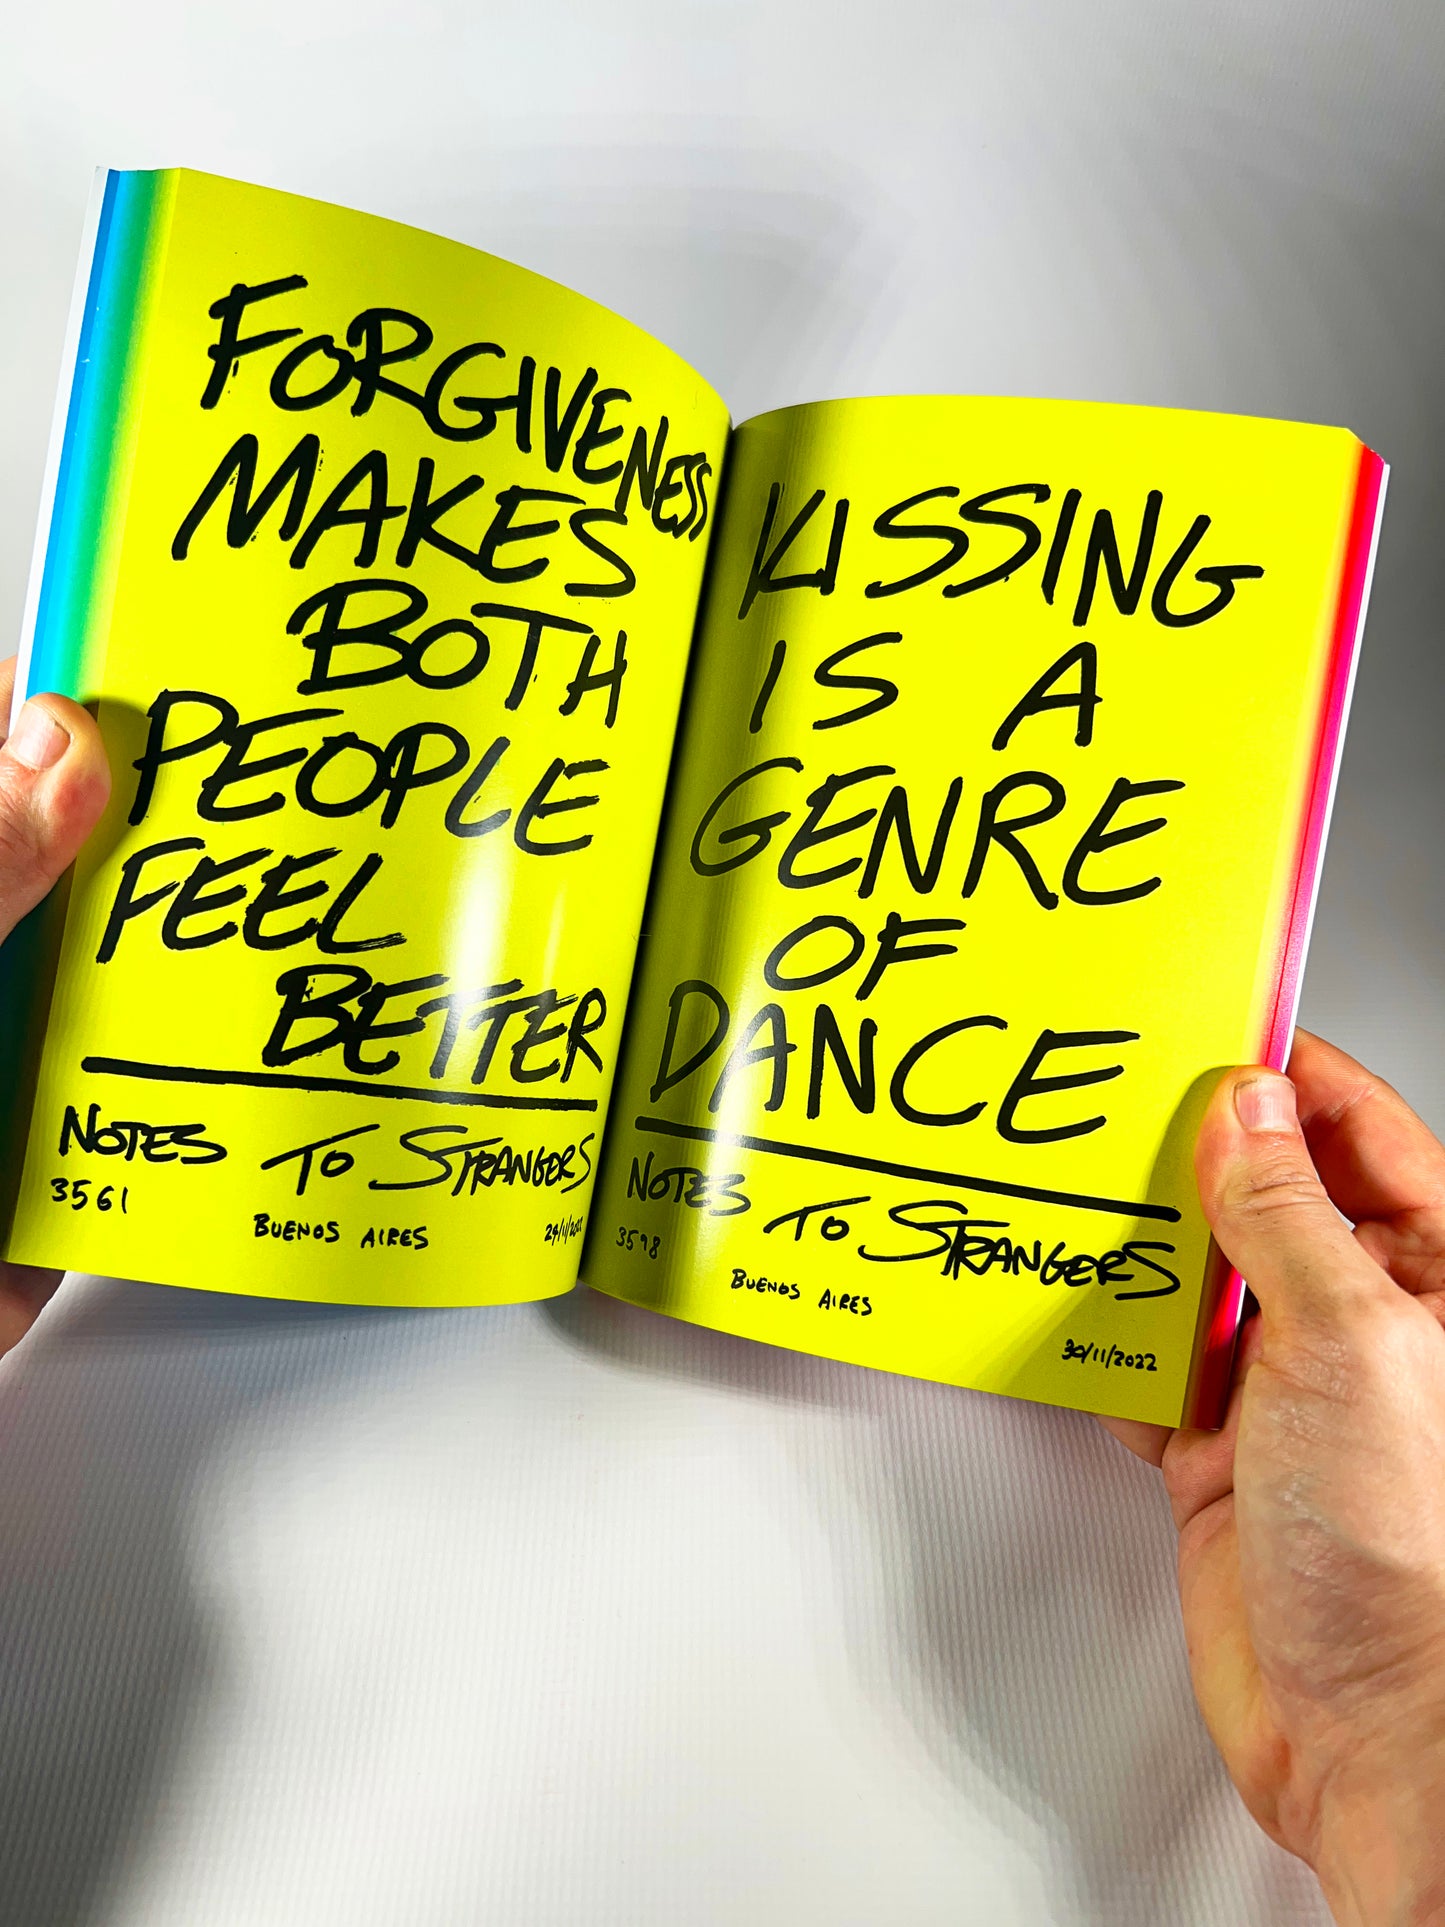 FORGIVENESS
MAKES
BOTH
PEOPLE
FEEL
BETTER
NOTES TO STRANGERS
3561
BUENOS AIRES
29/11/2022
KISSING
IS A
GENRE
OF
DANCE
NOTES TO STRANGERS
3598
BUENOS AIRES
30/11/2022